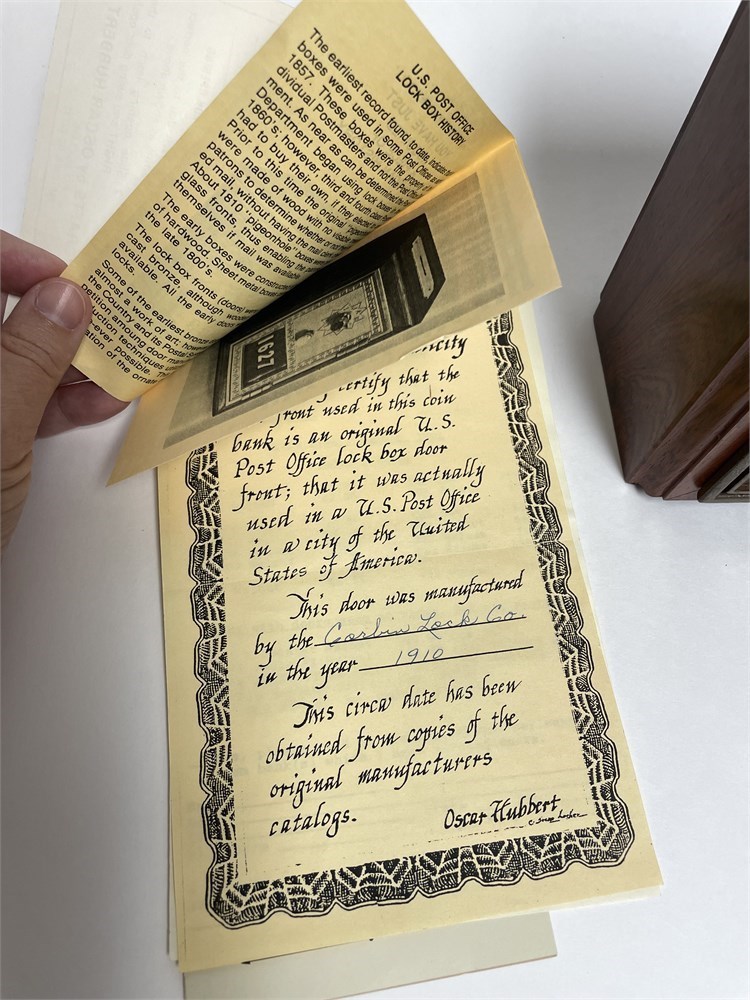 U.S. POST OFFICE
LOCK BOX HISTORY
The earliest record found, to date, indicates
boxes were used in some Post Office
1857. These boxes were the property of
dividual Postmasters and not the Post Office
ment. As near as can be determined the
Department began using lock boxes
1860's; however, third and fourth class
had to buy their own, if they elected
Prior to this time the original
were made of wood with no visable
patrons to determine whether or not
ed mail, without having the mail
About 1810 "pigeonhole" boxes
glass fronts, thus enabling the
themselves if mail was available
The early boxes were constructed
of hardwood. Sheet metal boxes
the late 1800's.
The lock box fronts (doors)
cast bronze, although
available. All the early
locks.
Some of the earliest bronze
almost a work of art;
the County and its Postal
petition amoung door
duction techniques
ever possible.
ation of the
1627
certify that the
front used in this coin
bank is an original U.S.
Post Office lock box door
front; that it was actually
used in a U.S. Post Office
in a city of the United
States of America.
This door was manufactured
by the Corbin Lock Co.
in the year 1910
This circa date has been
obtained from copies of the
original manufacturers
catalogs.
Oscar Hubbert